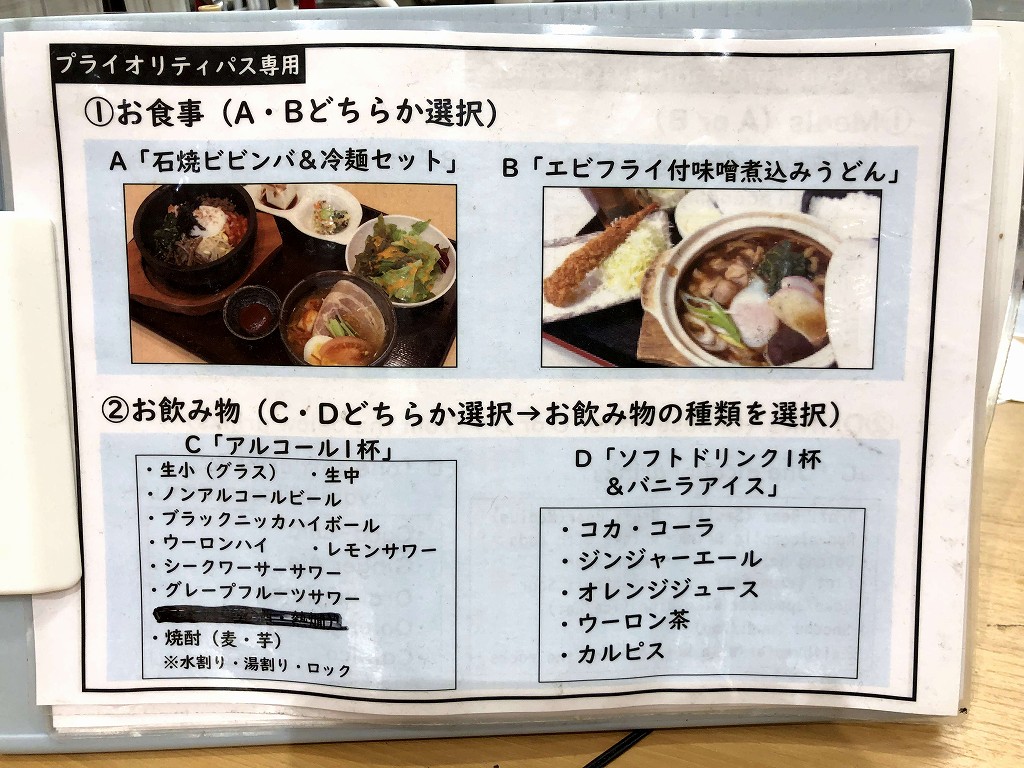 プライオリティパス専用
①お食事（A・Bどちらか選択）
A「石焼ビビンバ＆冷麺セット」
B「エビフライ付味噌煮込みうどん」
②お飲み物（C・Dどちらか選択→お飲み物の種類を選択）
C「アルコール1杯」
・生小（グラス）　・生中
・ノンアルコールビール
・ブラックニッカハイボール
・ウーロンハイ　・レモンサワー
・シークワーサーサワー
・グレープフルーツサワー
・焼酎（麦・芋）
※水割り・湯割り・ロック
D「ソフトドリンク1杯
＆バニラアイス」
・コカ・コーラ
・ジンジャーエール
・オレンジジュース
・ウーロン茶
・カルピス